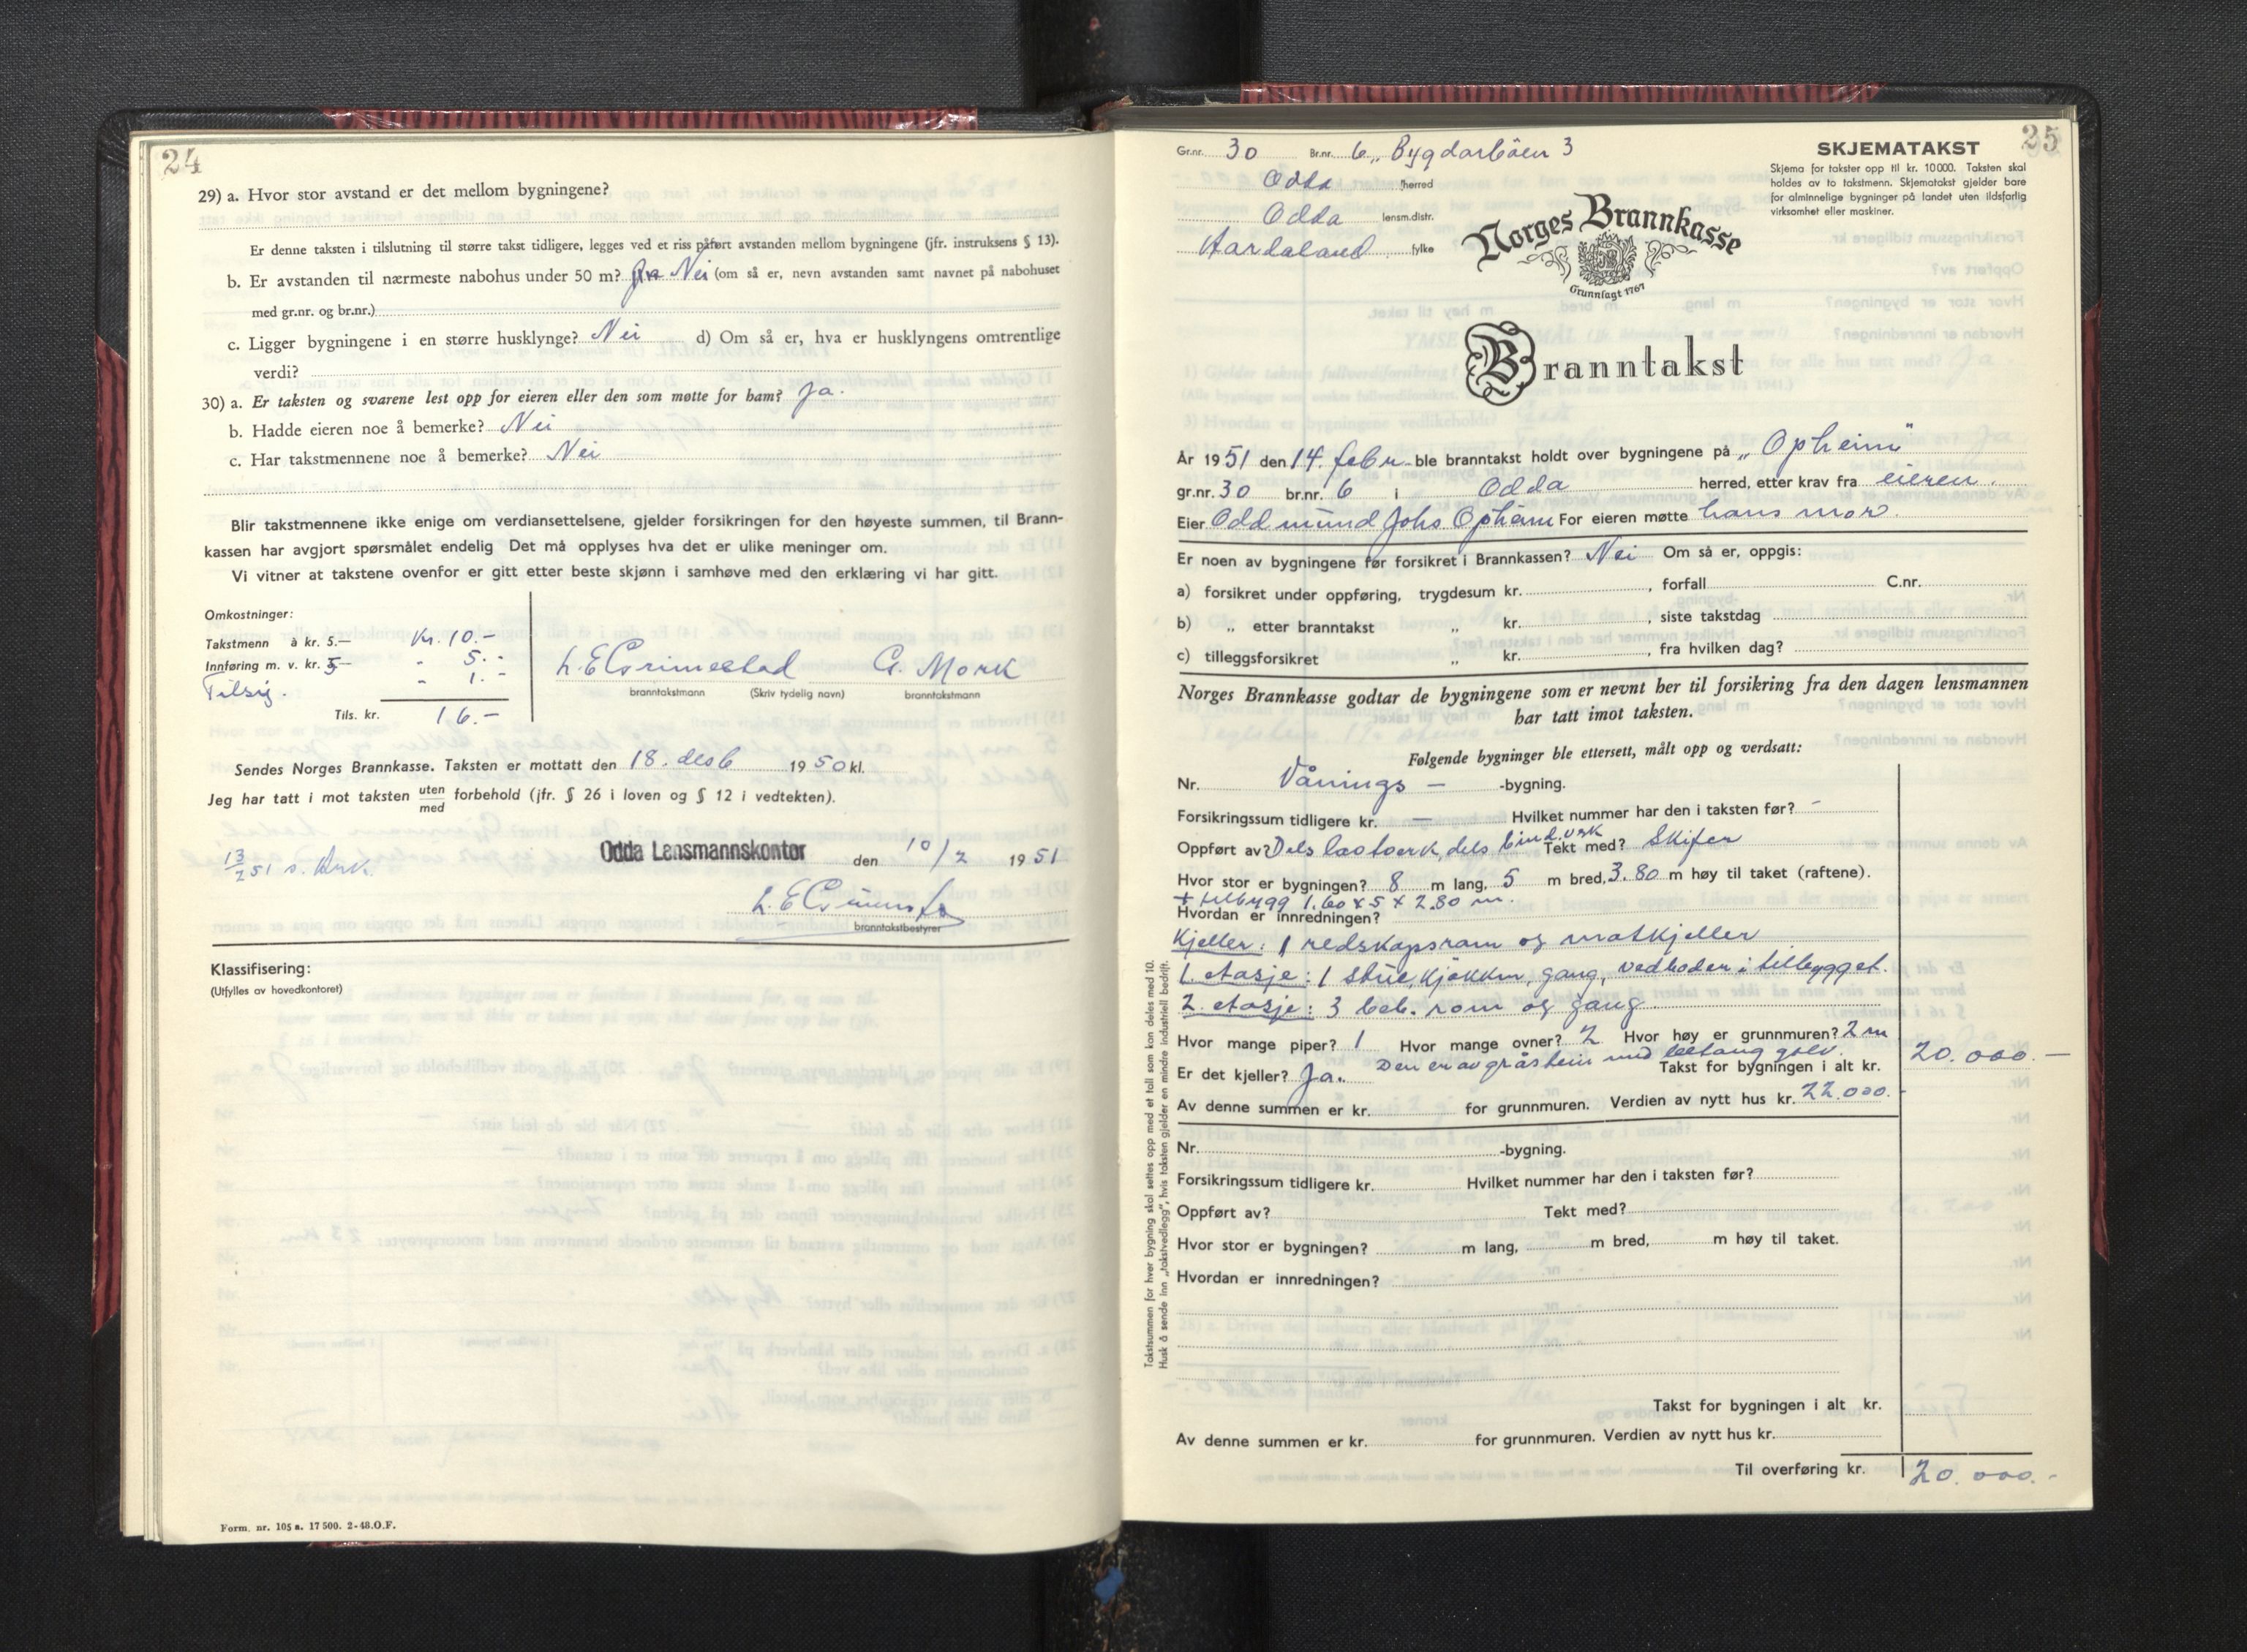 24
29) a. Hvor stor avstand er det mellom bygningene?
Er denne taksten i tilslutning til større takst tidligere, legges ved et riss påført avstanden mellom bygningene (jfr. instruksens § 13).
b. Er avstanden til nærmeste nabohus under 50 m? Nei (om så er, nevn avstanden samt navnet på nabohuset
med gr.nr. og br.nr.)
c. Ligger bygningene i en større husklynge? Nei d) Om så er, hva er husklyngens omtrentlige
verdi?
30) a. Er taksten og svarene lest opp for eieren eller den som møtte for ham? Ja.
b. Hadde eieren noe å bemerke? Nei
c. Har takstmennene noe å bemerke? Nei
Blir takstmennene ikke enige om verdiansettelsene, gjelder forsikringen for den høyeste summen, til Brann-
kassen har avgjort spørsmålet endelig Det må opplyses hva det er ulike meninger om.
Vi vitner at takstene ovenfor er gitt etter beste skjønn i samhøve med den erklæring vi har gitt.
Omkostninger:
Takstmenn à kr. 5.— Kr. 10.-
Innføring m. v. kr. 5— " 5.-
Tilsig. " 1.-
Tils. kr. 16.—
L. E. Grimestad G. Mork
branntakstmann (Skriv tydelig navn) branntakstmann
Sendes Norges Brannkasse. Taksten er mottatt den 18. desb 1950 kl.
Jeg har tatt i mot taksten uten/med forbehold (jfr. § 26 i loven og § 12 i vedtekten).
13/2 51 s.
Odda Lensmannskontor den 10/2 1951
branntakstbestyrer
Klassifisering:
(Utfylles av hovedkontoret)
Form. nr. 105 a. 17 500. 2-48.O.F.
25
Gr.nr. 30 Br.nr. 6 „Bygdarbøen 3
Odda herred
Odda lensm.distr.
Hordaland fylke
SKJEMATAKST
Skjema for takster opp til kr. 10 000. Taksten skal
holdes av to takstmenn. Skjematakst gjelder bare
for alminnelige bygninger på landet uten ildsfarlig
virksomhet eller maskiner.
Norges Brannkasse
Grunnlagt 1767
Branntakst
År 1951 den 14. febr. ble branntakst holdt over bygningene på „Opheim"
gr.nr. 30 br.nr. 6 i Odda herred, etter krav fra eieren.
Eier Oddmund Johs Opheim For eieren møtte hans mor.
Er noen av bygningene før forsikret i Brannkassen? Nei Om så er, oppgis:
a) forsikret under oppføring, trygdesum kr. , forfall C.nr.
b) „ etter branntakst „ kr. , siste takstdag
c) tilleggsforsikret „ kr. , fra hvilken dag?
Norges Brannkasse godtar de bygningene som er nevnt her til forsikring fra den dagen lensmannen
har tatt imot taksten.
Følgende bygninger ble ettersett, målt opp og verdsatt:
Nr. Vånings — -bygning.
Forsikringssum tidligere kr. — Hvilket nummer har den i taksten før? -
Oppført av? Dels lastverk, dels bind.verk Tekt med? Skifer
Hvor stor er bygningen? 8 m lang, 5 m bred, 3.80 m høy til taket (raftene).
+ tilbygg 1.60 x 5 x 2.80 m.
Hvordan er innredningen?
Kjeller: 1 redskapsrom og matkjeller
1. etasje: 1 stue, kjøkken, gang, vedboder i tilbygget.
2. etasje: 3 beb. rom og gang
Hvor mange piper? 1 Hvor mange ovner? 2 Hvor høy er grunnmuren? 2 m
Den er av gråstein med golv.
Er det kjeller? Ja. Takst for bygningen i alt kr. 20.000.—
Av denne summen er kr. for grunnmuren. Verdien av nytt hus kr. 22.000.-
Nr. -bygning.
Forsikringssum tidligere kr. Hvilket nummer har den i taksten før?
Oppført av? Tekt med?
Hvor stor er bygningen? m lang, m bred, m høy til taket.
Hvordan er innredningen?
Takst for bygningen i alt kr.
Av denne summen er kr. for grunnmuren. Verdien av nytt hus kr.
Til overføring kr. 20.000.-
Takstsummen for hver bygning skal settes opp med et tall som kan deles med 10.
Husk å sende inn „takstvedlegg", hvis taksten gjelder en mindre industriell bedrift.